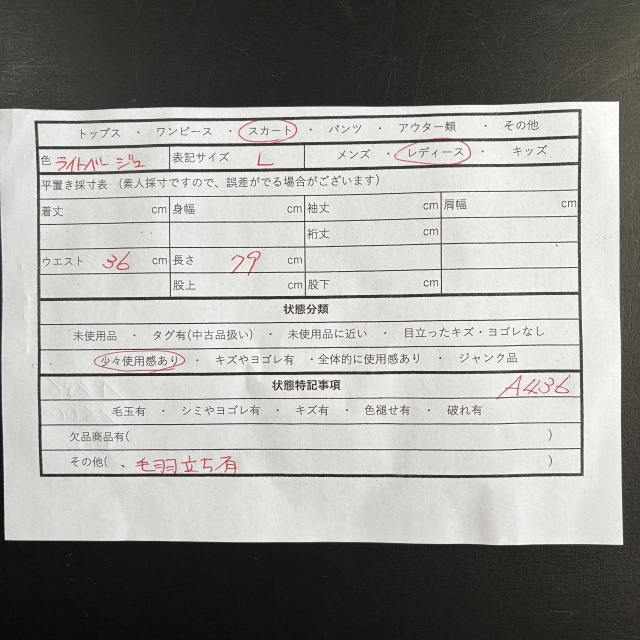 トップス ・ ワンピース ・ スカート ・ パンツ ・ アウター類 ・ その他
色 ライトベージュ 表記サイズ L メンズ ・ レディース ・ キッズ
平置き採寸表 (素人採寸ですので、誤差がでる場合がございます)
着丈 cm 身幅 cm 袖丈 cm 肩幅 cm
裄丈 cm
ウエスト 36 cm 長さ 79 cm
股上 cm 股下 cm
状態分類
未使用品 ・ タグ有(中古品扱い) ・ 未使用品に近い ・ 目立ったキズ・ヨゴレなし
少々使用感あり ・ キズやヨゴレ有 ・全体的に使用感あり ・ ジャンク品
状態特記事項 A436
毛玉有 ・ シミやヨゴレ有 ・ キズ有 ・ 色褪せ有 ・ 破れ有
欠品商品有( )
その他( ・毛羽立ち有 )